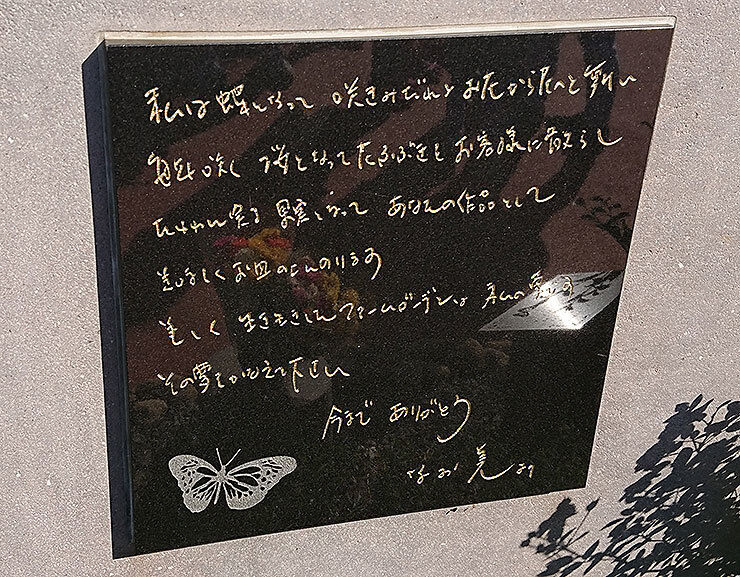 私は蝶となって 咲きみだれる お花から花へと舞い
毎年咲く 桜となって花ふぶきを お客様に散らし
たわわに実る 果実となって あなたの作品として
美しくお皿の上にのります
美しく 生き生きしたファームガーデンは 私の夢です
その夢をかなえて下さい
今まで ありがとう
なお美より